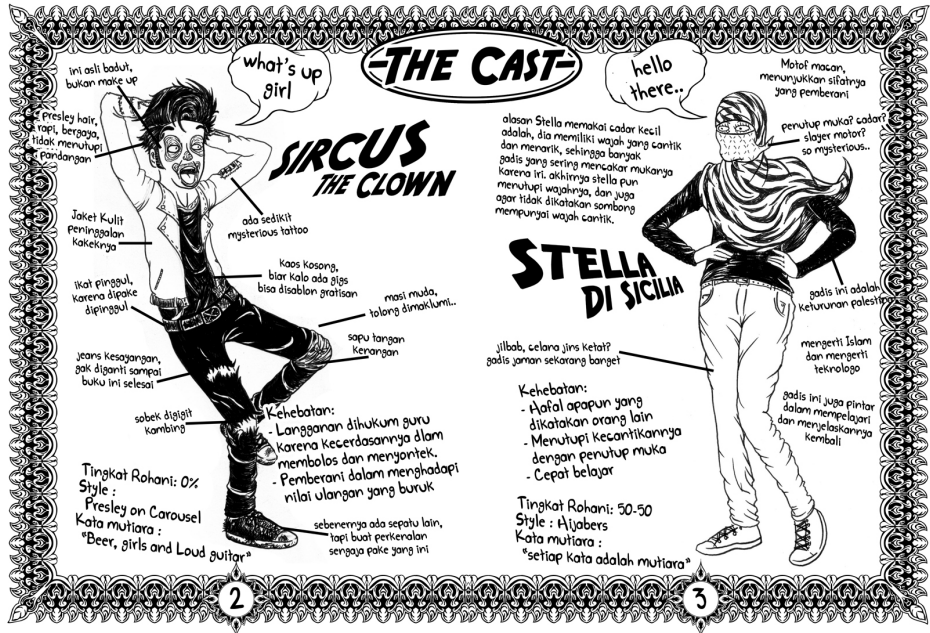 THE CAST
what's up
girl
ini asli badut,
bukan make up
Presley hair,
rapi, bergaya,
tidak menutupi
pandangan
SIRCUS
THE CLOWN
ada sedikit
mysterious tattoo
Jaket Kulit
peninggalan
kakeknya
kaos kosong,
biar kalo ada gigs
bisa disablon gratisan
ikat pinggul,
karena dipake
dipinggul
masi muda,
tolong dimaklumi..
sapu tangan
kenangan
jeans kesayangan,
gak diganti sampai
buku ini selesai
sobek digigit
kambing
Kehebatan:
- Langganan dihukum guru
karena kecerdasannya dlam
membolos dan menyontek.
- Pemberani dalam menghadapi
nilai ulangan yang buruk
Tingkat Rohani: 0%
Style :
Presley on Carousel
Kata mutiara :
"Beer, girls and Loud guitar"
sebenernya ada sepatu lain,
tapi buat perkenalan
sengaja pake yang ini
2
hello
there..
Motof macan,
menunjukkan sifatnya
yang pemberani
alasan Stella memakai cadar kecil
adalah, dia memiliki wajah yang cantik
dan menarik, sehingga banyak
gadis yang sering mencakar mukanya
karena iri. akhirnya stella pun
menutupi wajahnya, dan juga
agar tidak dikatakan sombong
mempunyai wajah cantik.
penutup muka? cadar?
slayer motor?
so mysterious..
STELLA
DI SICILIA
gadis ini adalah
keturunan palestina
jilbab, celana jins ketat?
gadis jaman sekarang banget
mengerti Islam
dan mengerti
teknologo
Kehebatan:
- Hafal apapun yang
dikatakan orang lain
- Menutupi kecantikannya
dengan penutup muka
- Cepat belajar
gadis ini juga pintar
dalam mempelajari
dan menjelaskannya
kembali
Tingkat Rohani: 50-50
Style : Hijabers
Kata mutiara :
"setiap kata adalah mutiara"
3